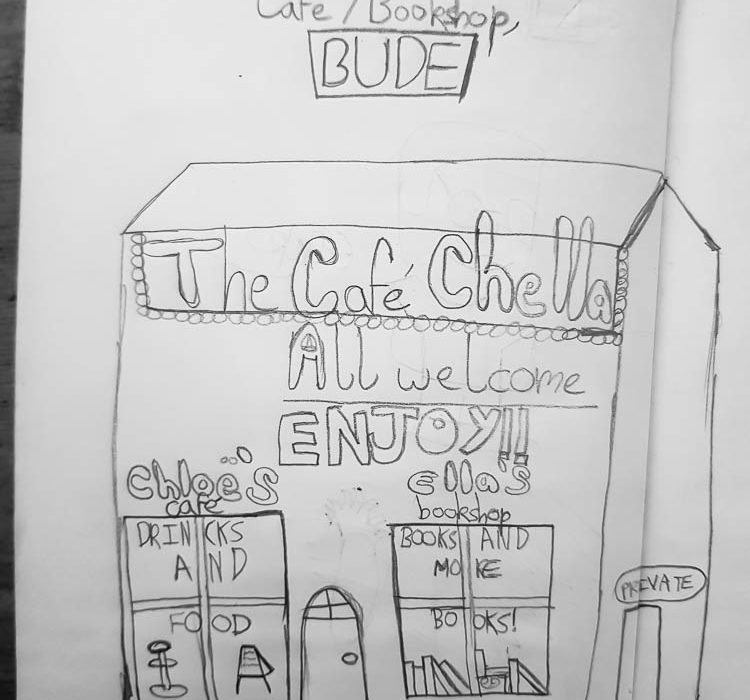 Cafe / Bookshop,
BUDE
The Café Chella
All welcome
ENJOY!!
Chloë's
café
Ella's
bookshop
DRINCKS
AND
FOOD
BOOKS AND
MORE
BOOKS!
PRIVATE